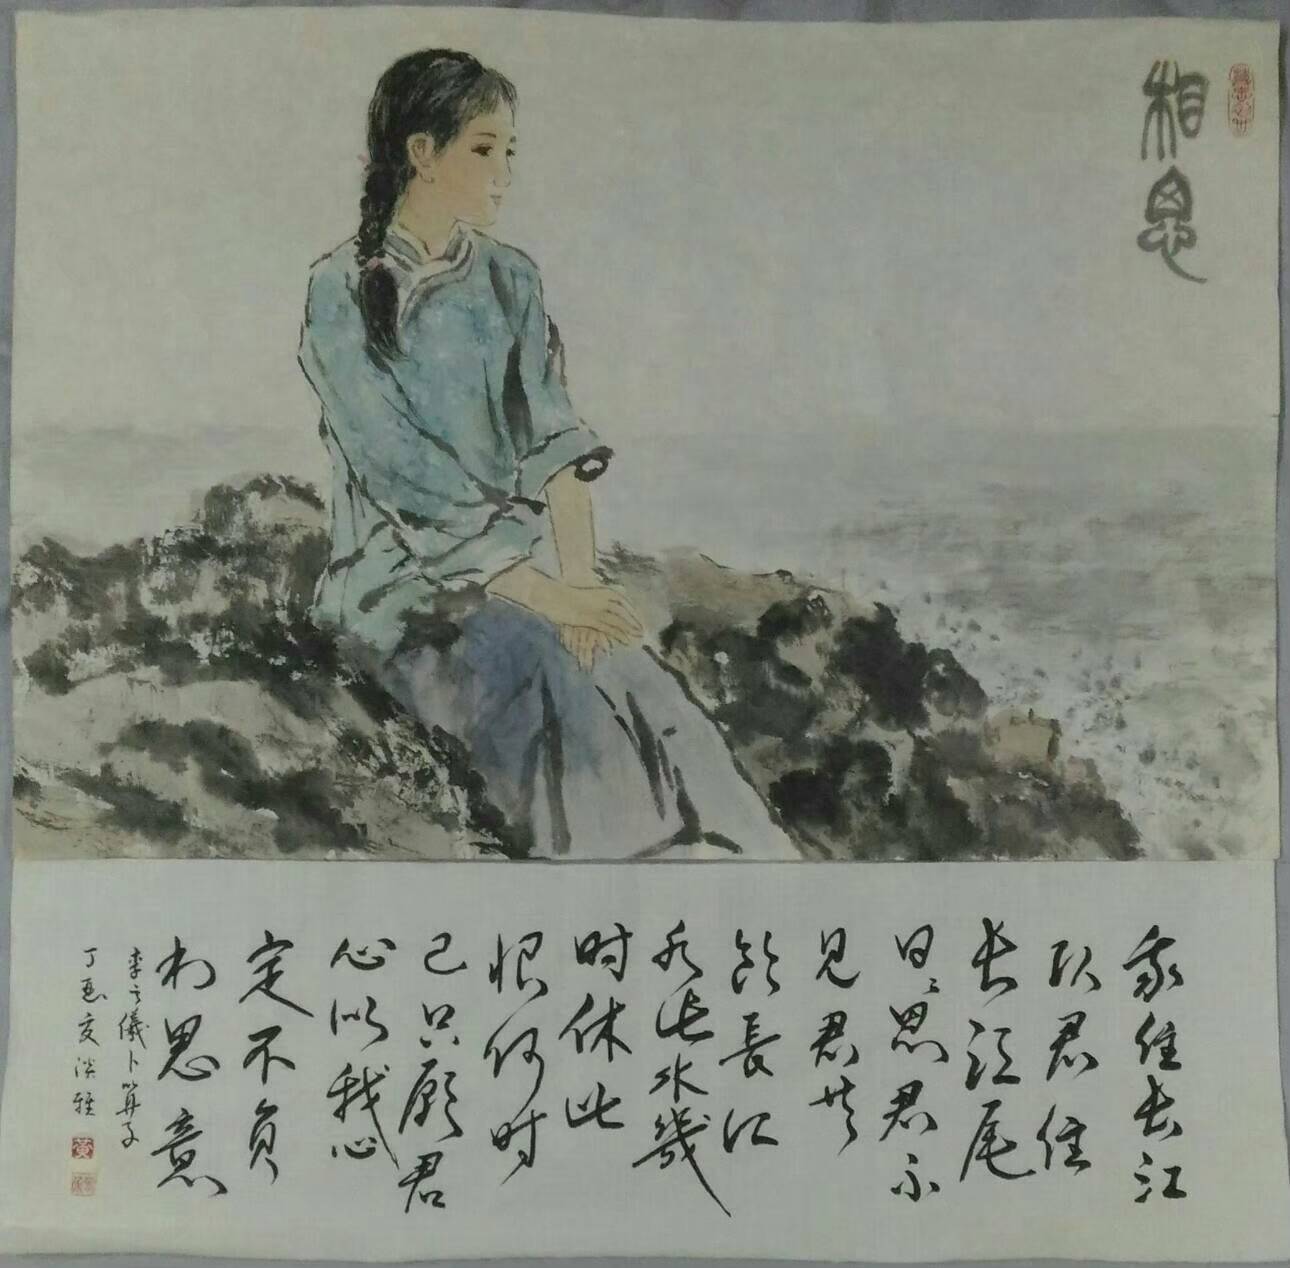 相思
我住长江
头君住
长江尾
日〻思君不
见君共
饮長江
水此水幾
时休此
恨何时
已只願君
心似我心
定不負
相思意
李之儀卜算子
丁酉夏淡雅
黄